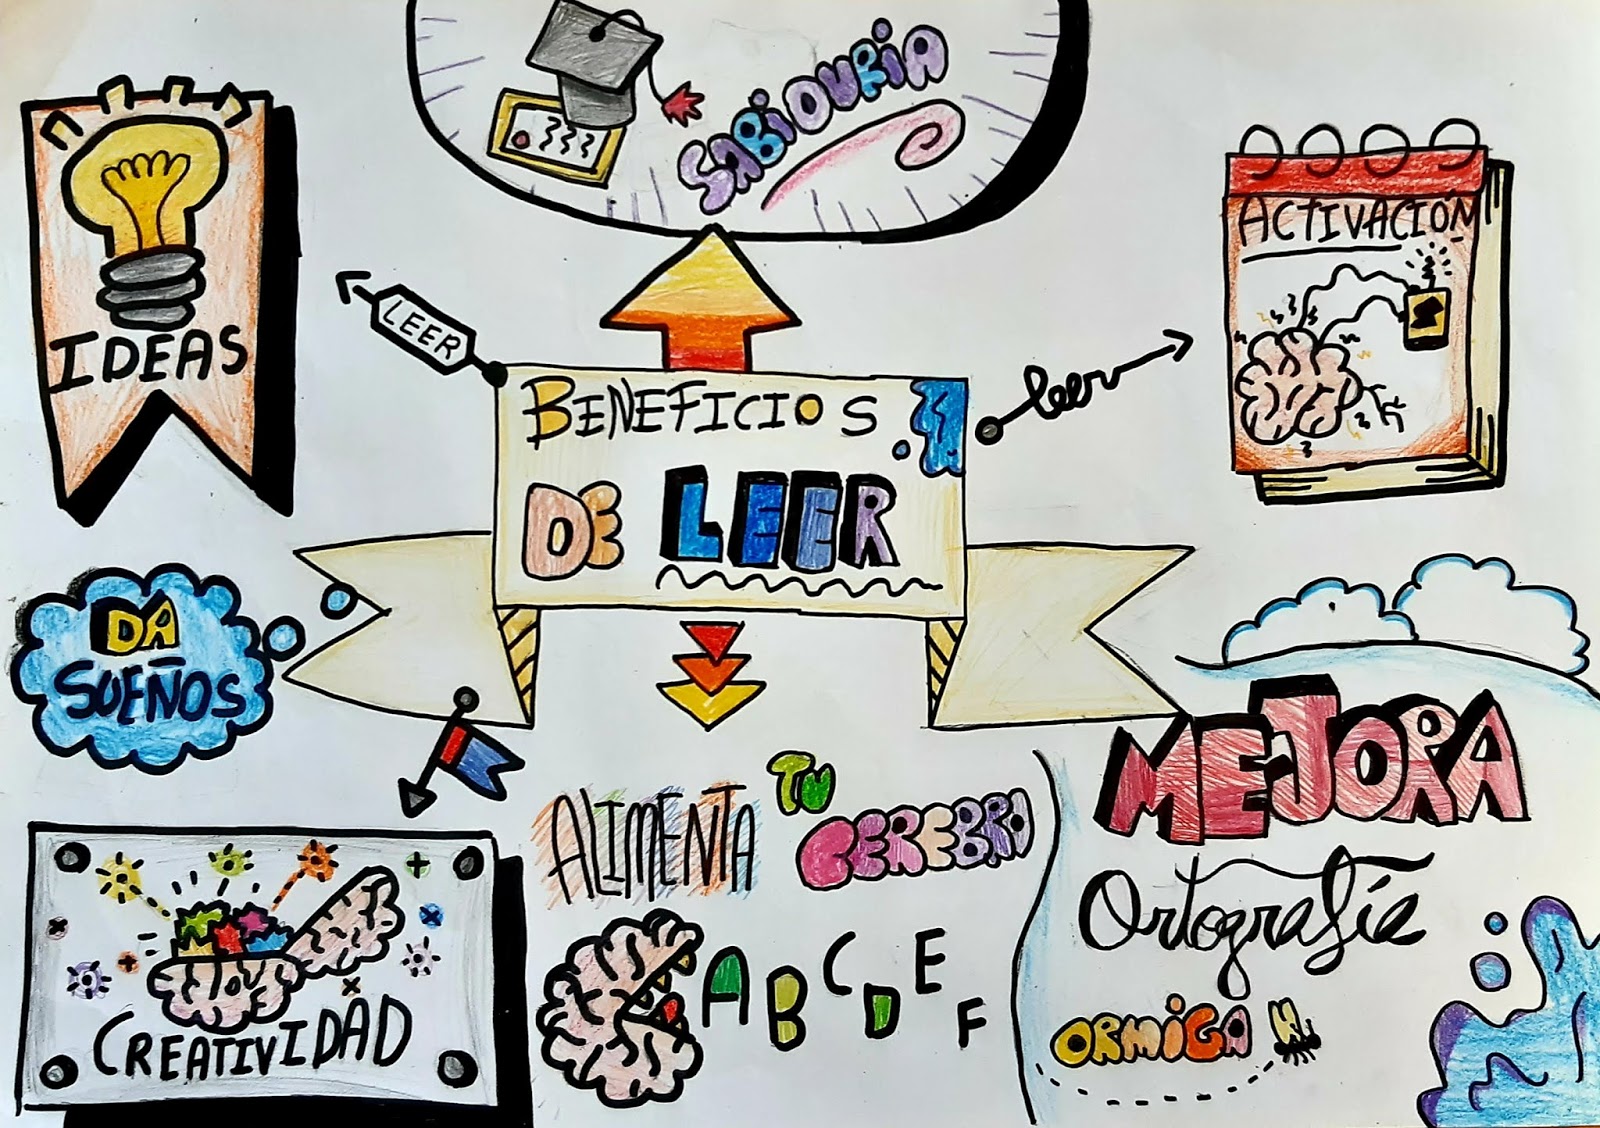 SABiDURiA
IDEAS
ACTIVACIÓN
LEER
leer
BENEFICIOS
DE LEER
DA
SUEÑOS
CREATIVIDAD
ALIMENTA TU CEREBRO
A B C D E F
MEJORA
Ortografía
ORMiGA H